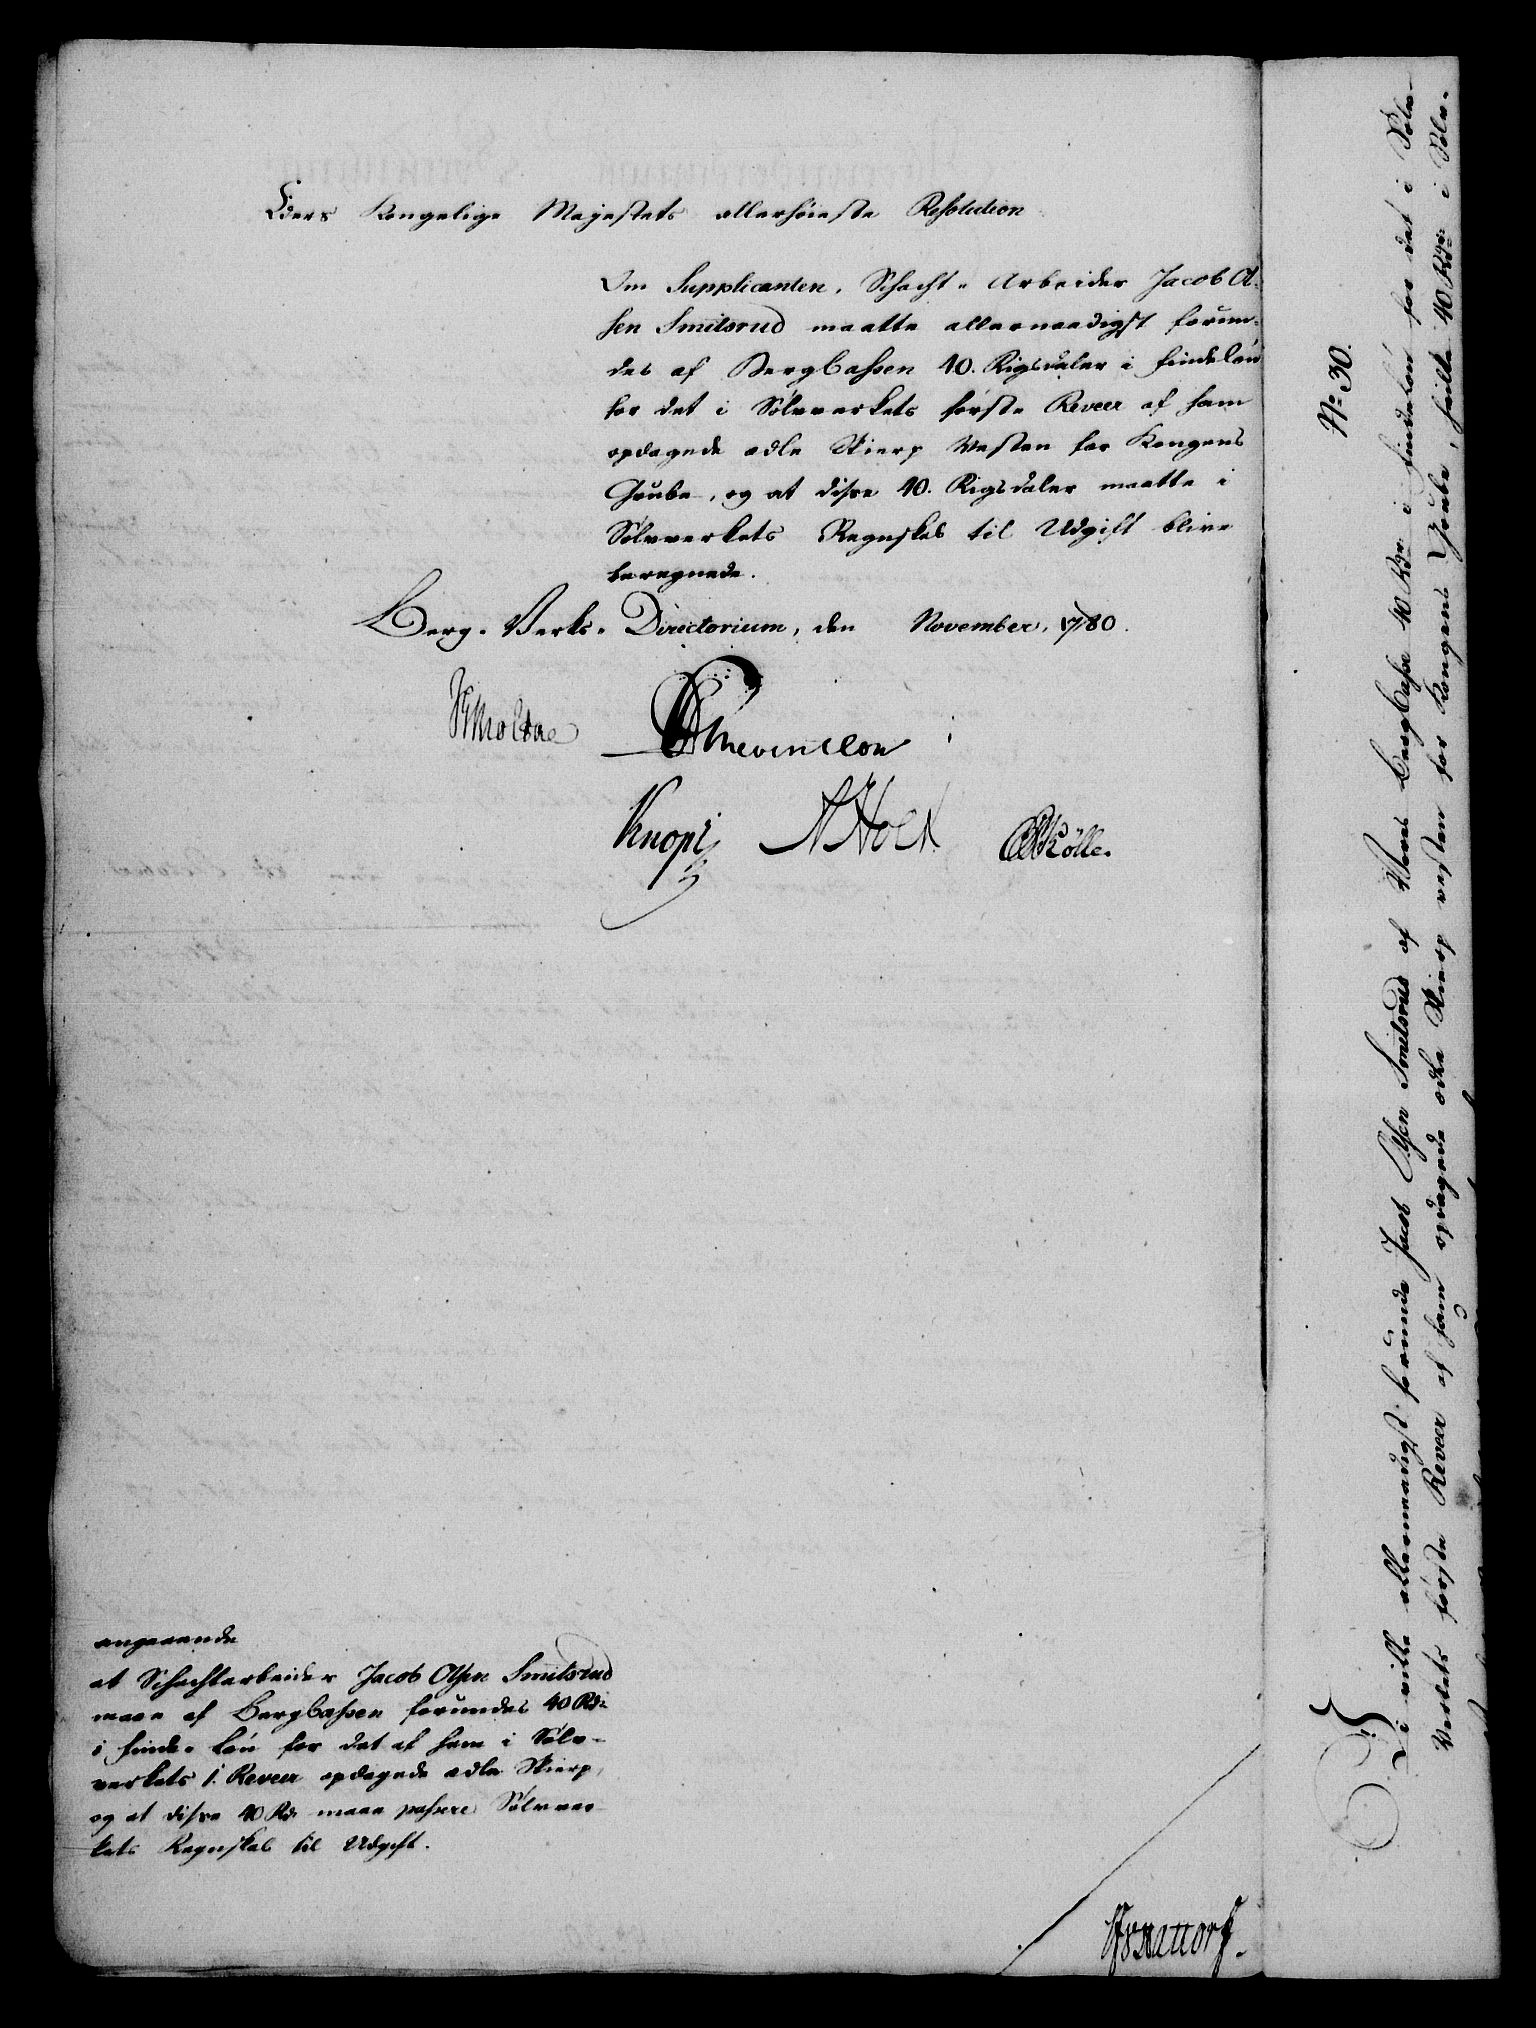 Eders Kongelige Majestets allerhöieste Resolution
Om Supplicanten, Schacht-Arbeider Jacob Ol-
sen Smitsrud maatte allernaadigst forun-
des af Bergcassen 40. Rigsdaler i findelön
for det i Sölvverkets förste Reveer af ham
opdagede ædle Skierp Vesten for Kongens
Grube, og at disse 40. Rigsdaler maatte i
Sölvverkets Regnskab til Udgift blive
beregnede.
Berg-Verks-Directorium, den November, 1780.
Knopf NHolt Kölle.
angaaende
at Schachtarbeider Jacob Olsen Smitsrud
maae af Bergcassen forundes 40 Rd.
i finde-lön for det af ham i Sölv-
verkets 1. Reveer opdagede ædle Skierp,
og at disse 40 Rd. maae passere Sölvver-
kets Regnskab til Udgift.
No. 30.
Vi ville allernaadigst forunde Jacob Olsen Smitsrud af Vores Bergcasse 40 Rdr. i findelön for det i Sölv-
Verkets förste Reveer af ham opdagede ædle Skierp vesten for Kongens Grube, hvilke 40 Rdr. i Sölv-